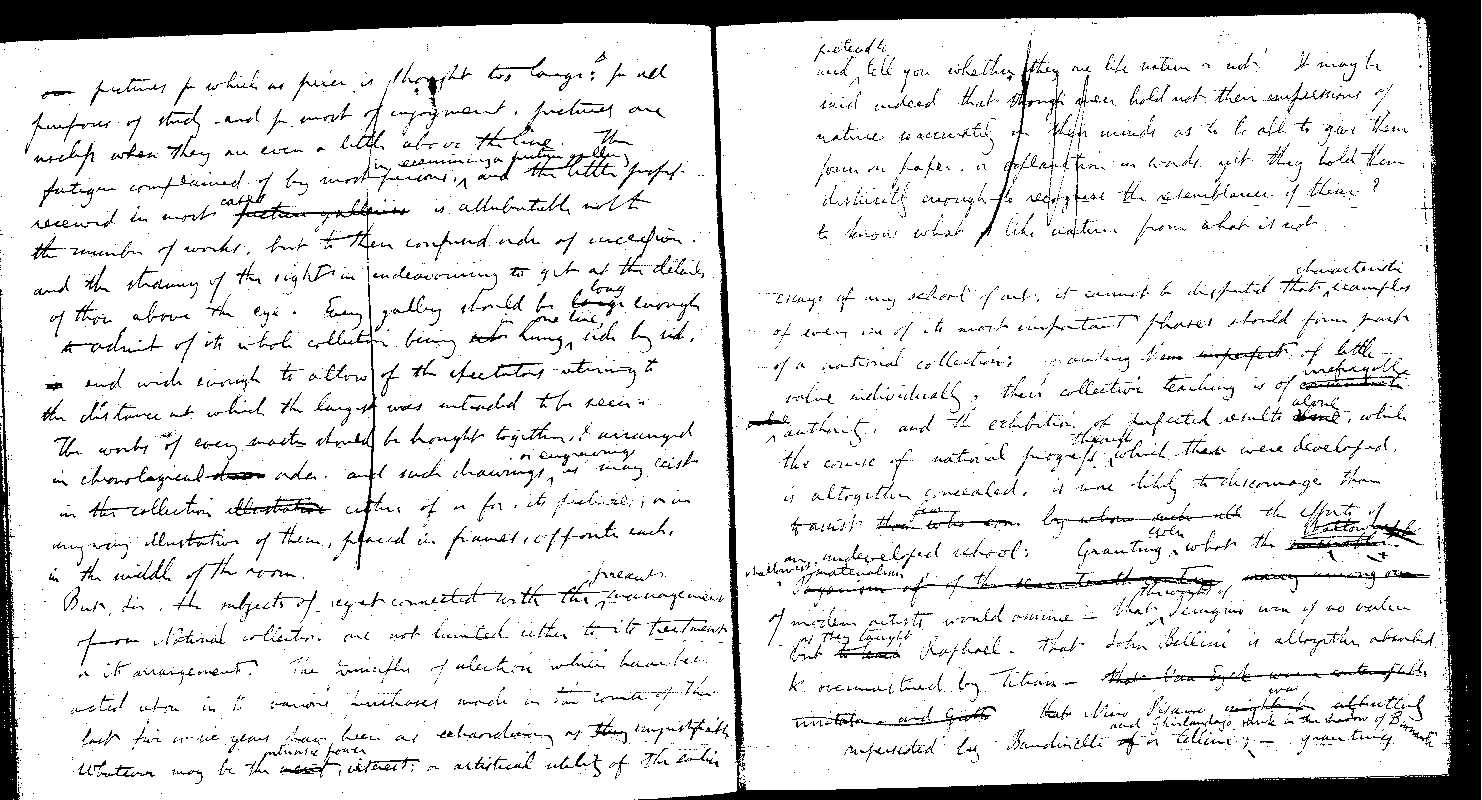 pictures for which no price is thought too large: for all
purposes of study and for most of enjoyment, pictures are
useless when they are even a little above the line. The
in examining a picture gallery
fatigue complained of by most persons, and the little profit
cases
received in most picture galleries is attributable not to
the number of works, but to their confused order of succession.
and the straining of the sight in endeavouring to get at the details
of those above the eye. Every gallery should be large long enough
one line,
to admit of its whole collection being hung, side by side,
and wide enough to allow of the spectators retiring to
the distance at which the largest was intended to be seen.
The works of every master should be brought together, & arranged
in chronological order. and such drawings, or engravings as may exist
in the collection illustrative either of or for, its pictures, or in
any way illustrative of them, placed in frames, opposite each,
in the middle of the room.
present
But, Sir, the subjects of regret connected with the management
of our National collection are not limited either to its treatment
or its arrangement. The principles of selection which have been
acted upon in the various purchases made in the course of the
last five or six years have been as extraordinary as they unjustifiable
intrinsic power
Whatever may be the interest: or artistical utility of the earlier
pretend to
and, tell you whether they are like nature or not! It may be
said indeed that though men hold not their impressions of
nature so accurately in their minds as to be able to give them
form on paper, or explanation in words, yet they hold them
distinctly enough to recognise the resemblance of them?
to know what is like nature from what is not
characteristic
essays of any school of art, it cannot be disputed that examples
of every one of its most important phases should form part
of a national collection; granting them imperfect of little
value individually, their collective teaching is of irrefragable
alone
authority, and the exhibition of perfected results, while
through
the course of national progress which these were developed,
is altogether concealed, is more likely to discourage than
to assist by the efforts of
an undeveloped school: Granting even, what the shallowest
materialism of the seventeenth century many among our
of modern artists would assume — that Perugino was of no value
but as they taught Raphael. that John Bellini is altogether absorbed
& overmastered by Titian — that Van Eyck
imitator and Giotto that Nino Pisano was altogether
superseded by Bandinelli or Cellini, and Ghirlandajo sunk in the shadow of Buonarotti — granting